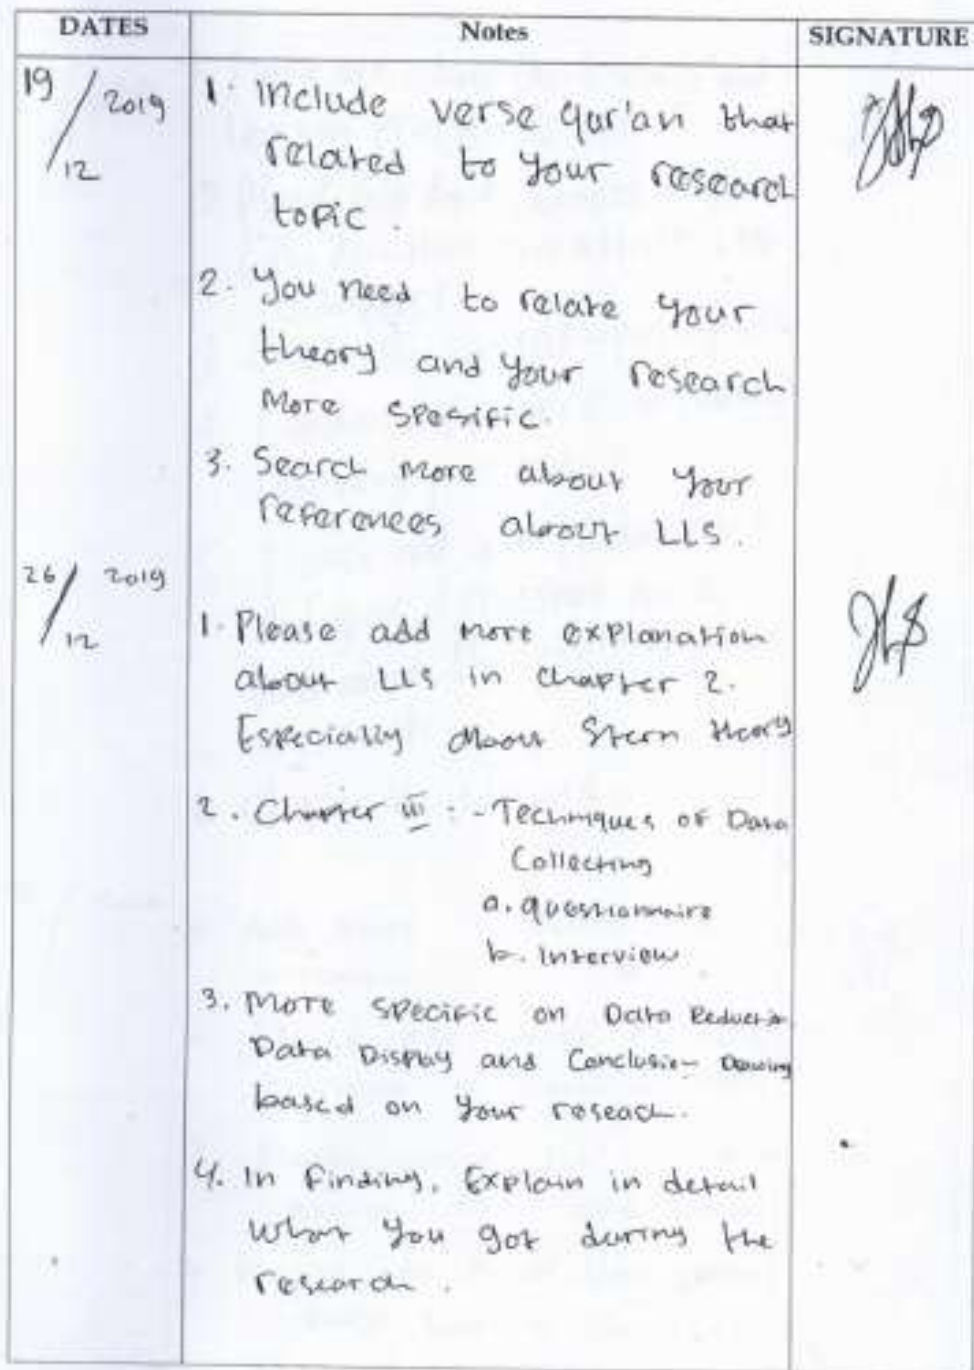 DATES Notes SIGNATURE
19 / 2019 1. Include verse qur'an that
12 related to your research
topic.
2. You need to relate your
theory and your research
More spesific.
3. Search more about your
references about LLS.
26 / 2019
12 1. Please add more explanation
about LLS in Chapter 2.
Especially about Stern theory
2. Chapter III : - Techniques of Data
Collecting
a. questionnaire
b. Interview
3. More specific on Data Reduction
Data Display and Conclusion Drawing
based on your reseach.
4. In Finding, Explain in detail
what you got during the
research.